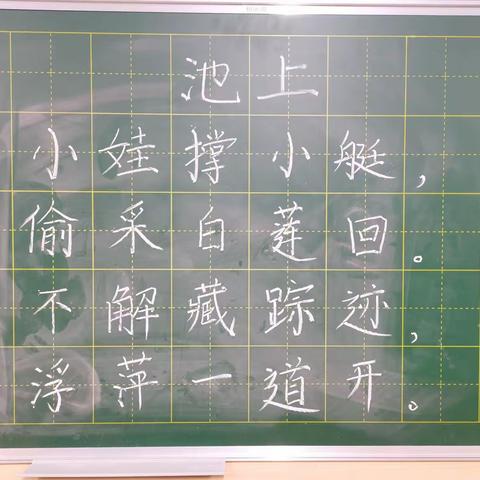 池上
小娃撑小艇，
偷采白莲回。
不解藏踪迹，
浮萍一道开。